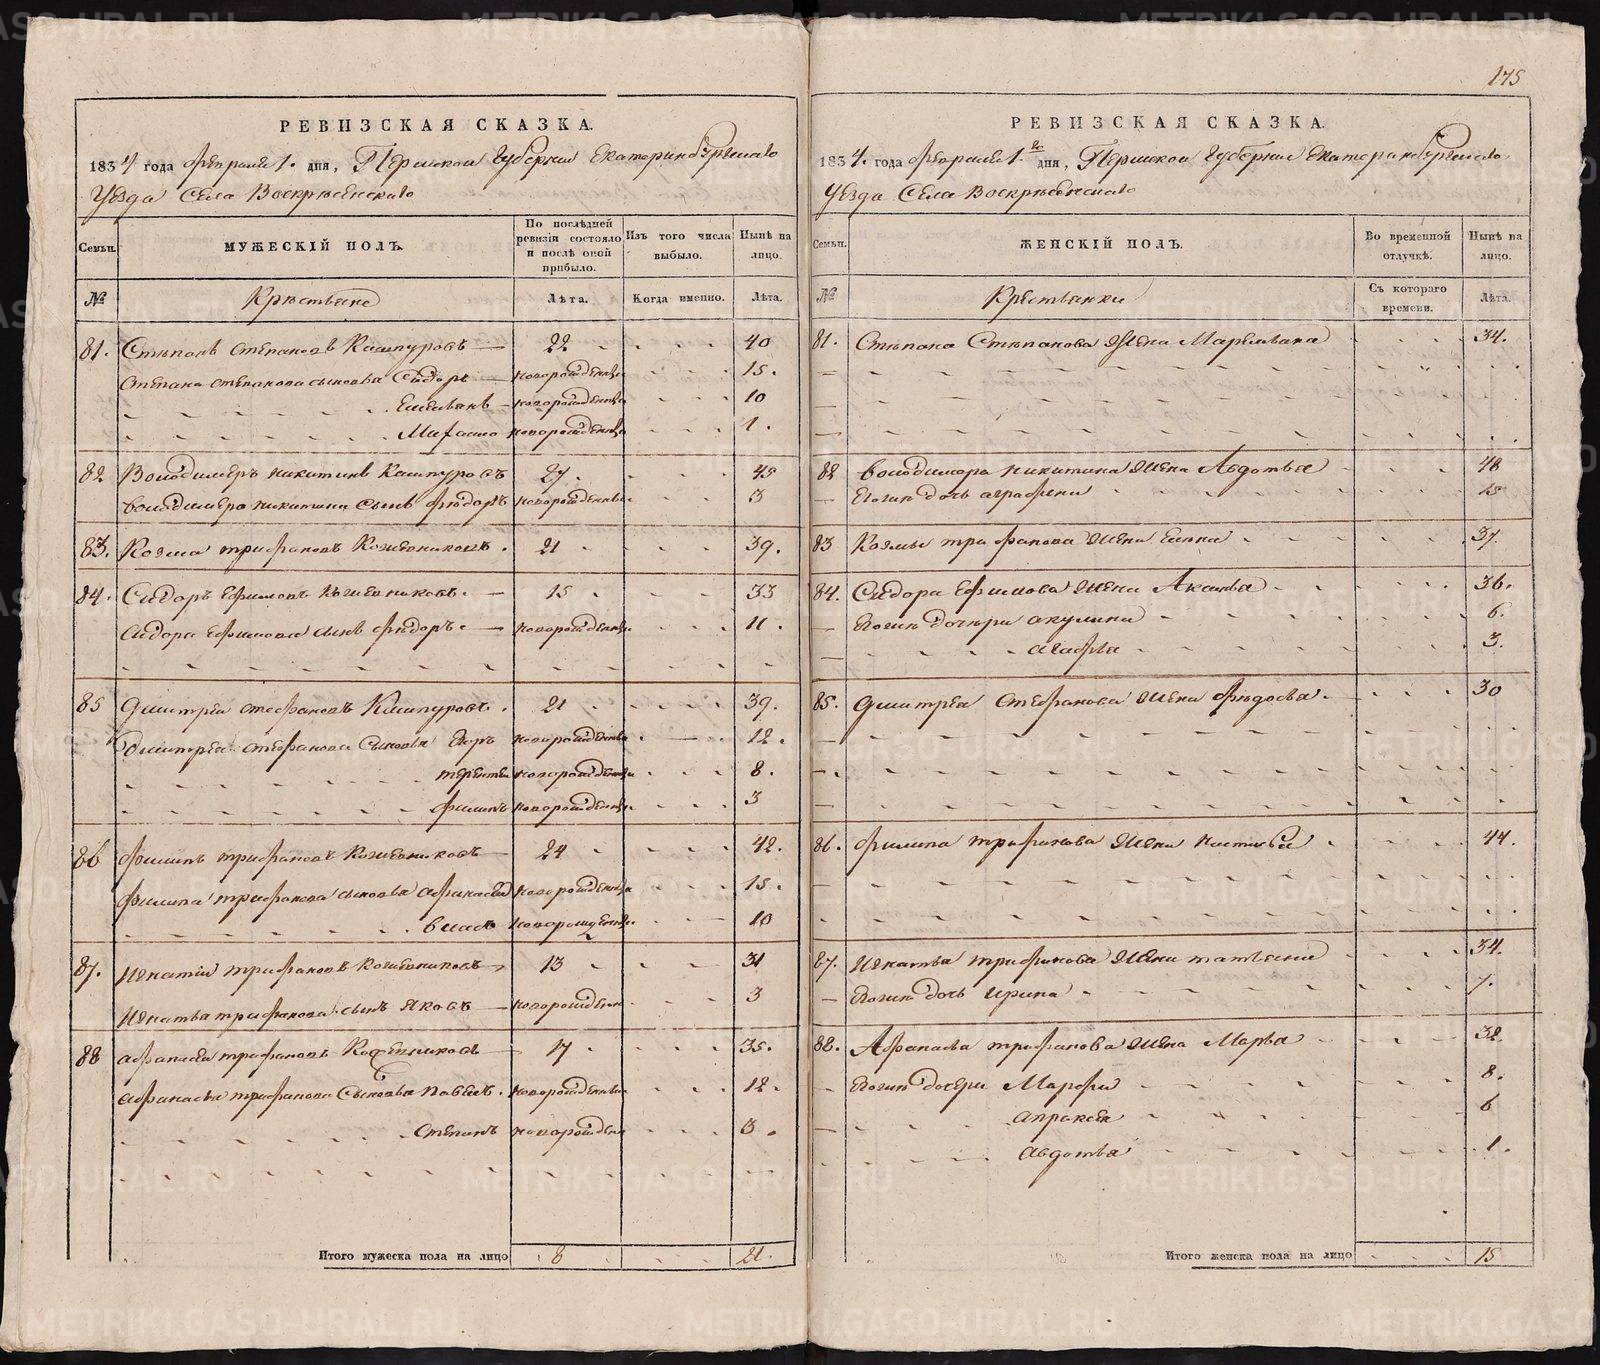 175
РЕВИЗСКАЯ СКАЗКА.
1834 года февраля 1. дня, Пермской Губернии Екатеринбургскаго
Уезда Села Воскресенскаго
Семьи. МУЖЕСКІЙ ПОЛЪ. По послѣдней ревизіи состояло и послѣ оной прибыло. Изъ того числа выбыло. Нынѣ на лицо.
№ Крестьяне Лѣта. Когда именно. Лѣта.
81. Степанъ Степановъ Кашпуровъ 22 40
Степана Степанова сыновья Сидоръ новорожденны 15.
Емельянъ новорожденны 10
новорожденны 1.
82 Володимеръ Никитинъ Кашпуровъ 27 45
Володимера Никитина сынъ Федоръ новорожденны 3
83. Козма Трифановъ Кожевниковъ. 21 39.
84. Сидоръ Ефимовъ Кожевниковъ. 15 33
Сидора Ефимова сынъ Федоръ новорожденны 11.
85 Дмитрей Стефановъ Кашпуровъ. 21 39.
Дмитрея Стефанова сыновья Егоръ новорожденны 12.
терентей новорожденны 8.
филипъ новорожденны 3
86 Филипъ Трифановъ Кожевниковъ 24 42.
Филипа Трифанова сыновья Афанасей новорожденны 15.
власъ новорожденны 10
87. Игнатій Трифановъ Кожевниковъ 13 31
Игнатья Трифанова сынъ Яковъ новорожден 3
88 Афанасей Трифановъ Кожевниковъ 17 35.
Афанасья Трифанова сыновья Павелъ. новорожденны 12.
Степанъ новорожден 3.
Итого мужеска пола на лицо 8 21.
РЕВИЗСКАЯ СКАЗКА.
1834. года февраля 1. го дня, Пермской Губернии Екатеринбургскаго
Уезда Села Воскресенскаго
Семьи. ЖЕНСКІЙ ПОЛЪ. Во временной отлучкѣ. Нынѣ на лицо.
№ Крестьянки Съ котораго времени. Лѣта.
81. Степана Степанова Жена Маремьяна 34.
82 Володимера Никитина Жена Авдотья 48
Евоже дочь аграфена 15
83 Козмы Трифанова Жена Елена 37.
84. Сидора Ефимова Жена 36.
Евоже дочери акулина 6.
агафья 3.
85. Дмитрея Стефанова Жена Федосья. 30
86. Филипа Трифанова Жена Настасья 44.
87. Игнатья Трифанова Жена татьяна 34.
Евоже дочь ирина 7.
88. Афанасья Трифанова Жена Марья 32.
Евоже дочери Марфа 8.
апраксея 6
авдотья 1.
Итого женска пола на лицо 15
METRIKI.GASO-URAL.RU